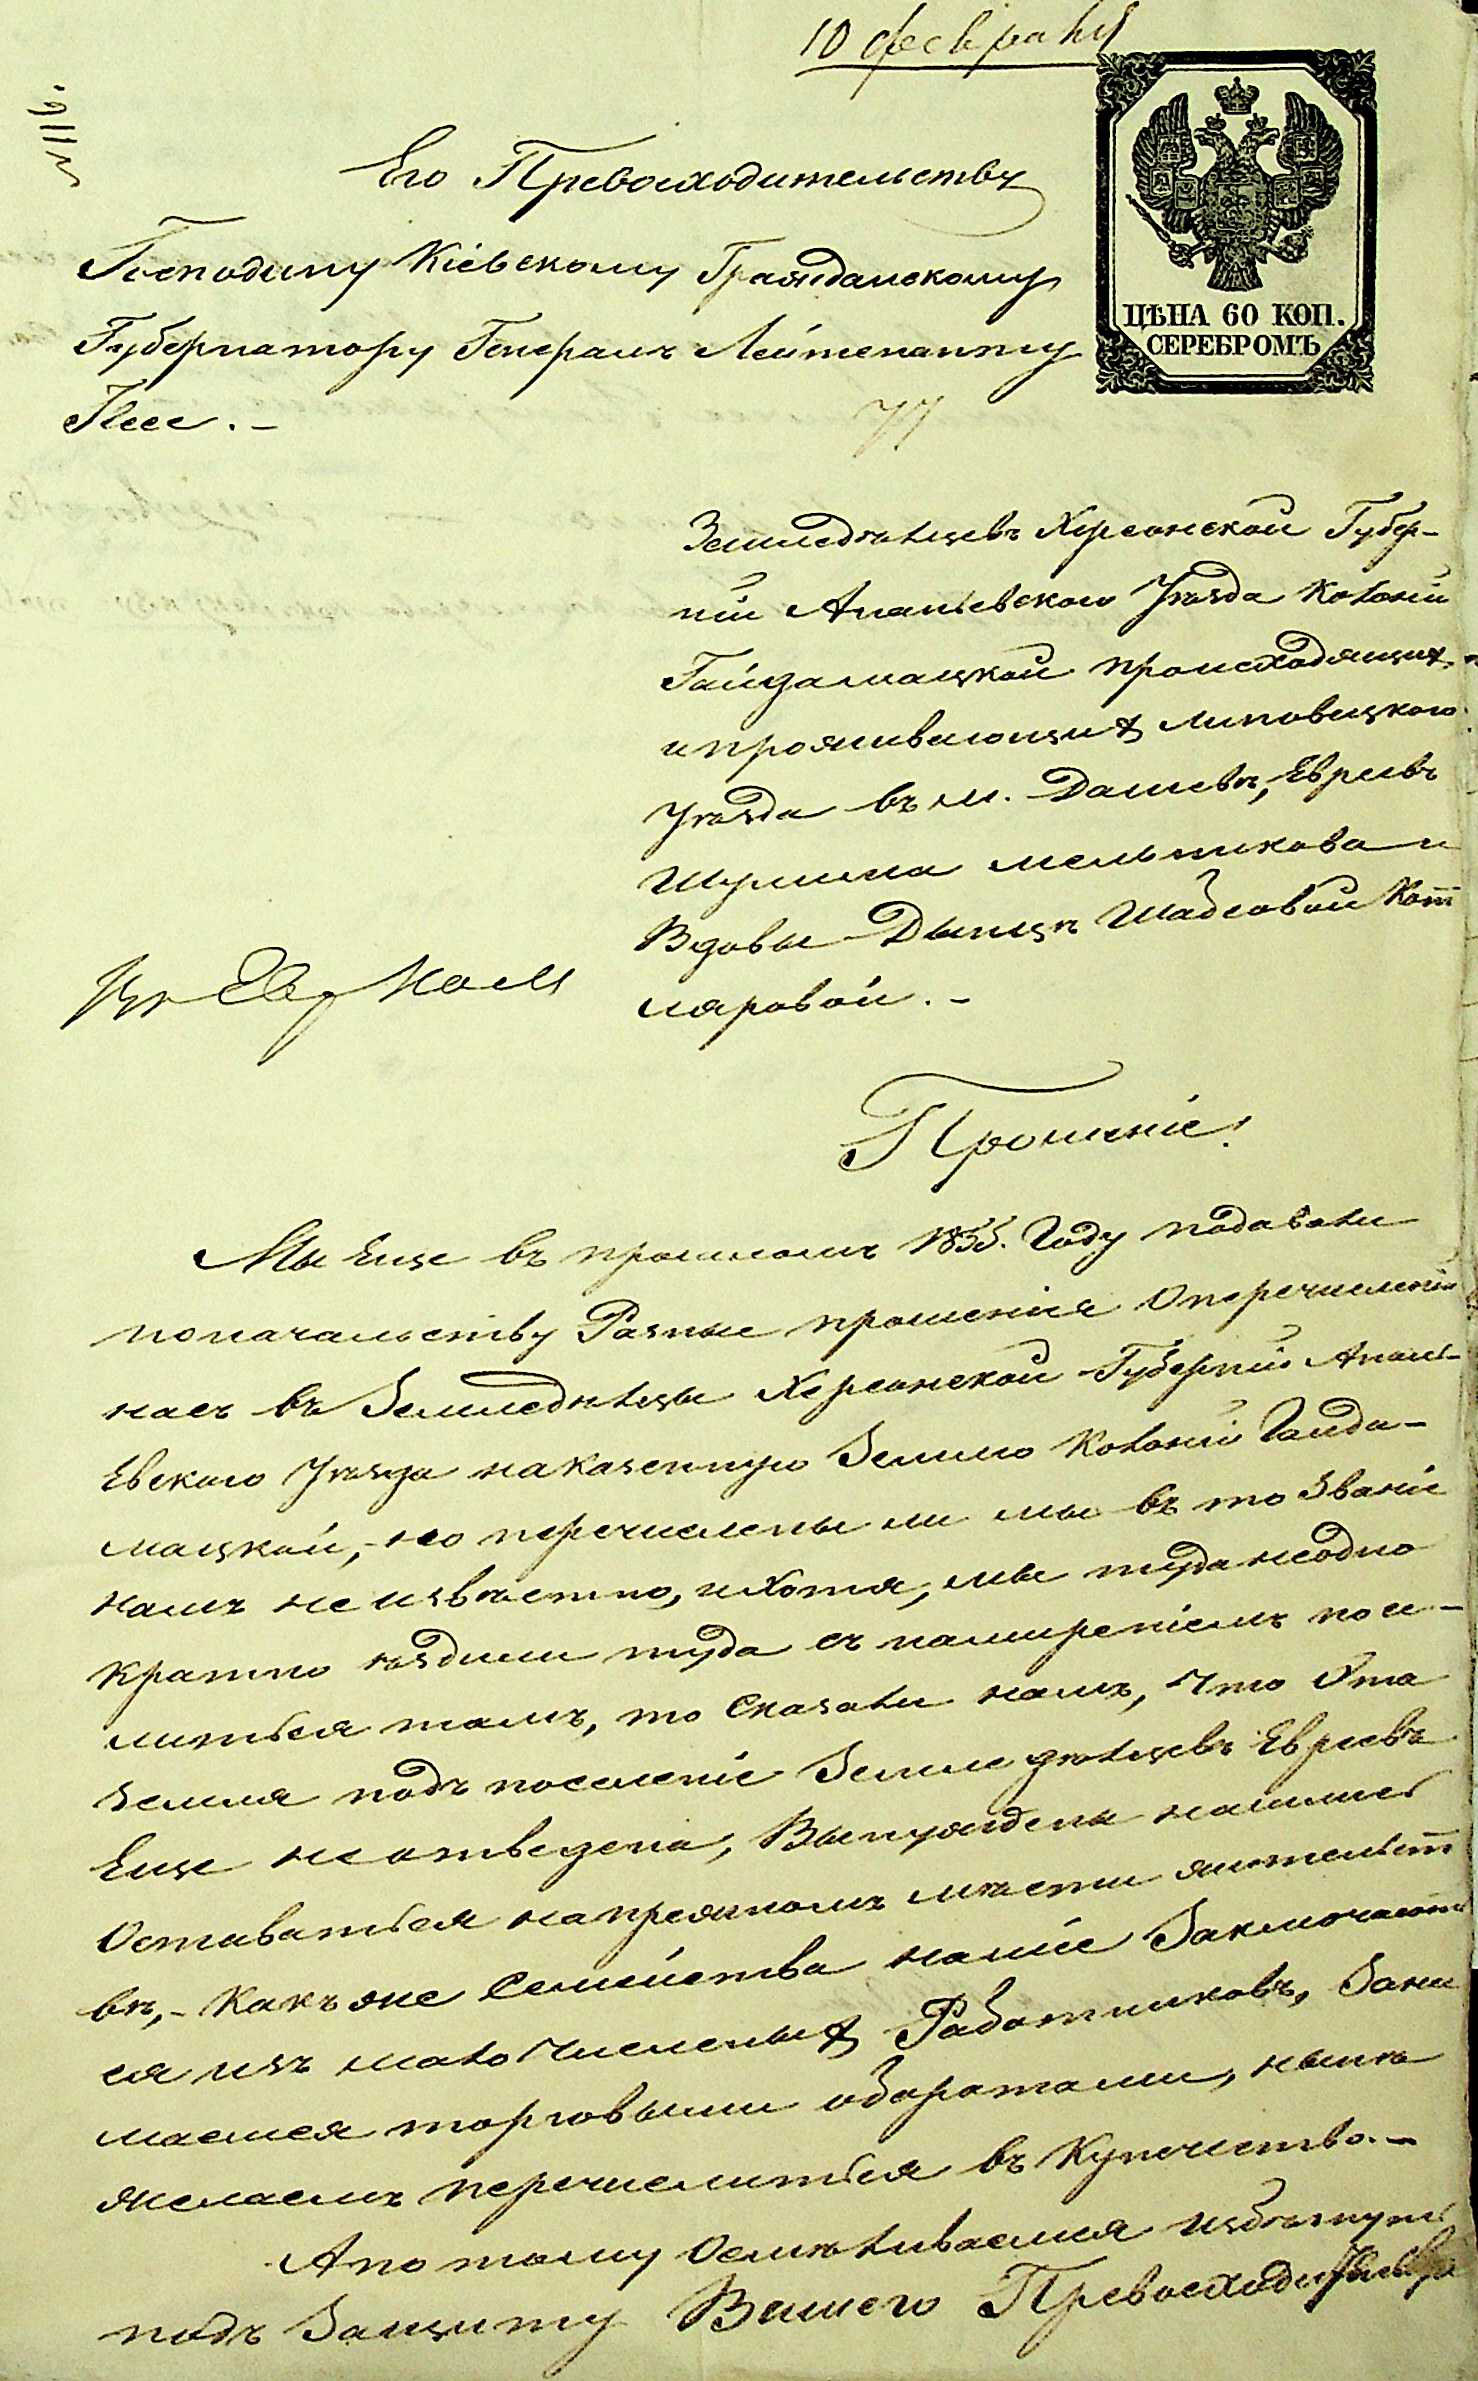 10 февраля
Его Превосходительству
Господину Кіевскому Гражданскому
Губернатору Генералъ Лейтенанту
Гессе. –
77
ЦѢНА 60 КОП.
СЕРЕБРОМЪ
Земледѣльцевъ Херсонской Губер-
ніи Ананьевскаго Уѣзда Колоніи
Гайдамацкой происходящихъ
и проживающихъ Липовецкаго
Уѣзда въ м. Дашевѣ, Евреевъ
Шулима Мельникова и
Вдовы Дынцѣ Шабсовой Кот
ляровой. –
Прошеніе!
Мы Еще въ прошломъ 1855. Году подавали
поначальству Разные прошенія Оперечисленіи
насъ въ Земледѣльцы Херсонской Губерніи Анань-
Евскаго Уѣзда наказенную Землю Колоніи Гайда-
мацкой, – но перечислены ли мы въ то Званіе
намъ не извѣстно, и Хотя, мы туда неодно
Кратно ѣздили туда съ намиреніемъ посе-
литься тамъ, то Сказали намъ, Что Эта
Земля подъ поселеніе Земледѣльцевъ Евреевъ
Еще не отведена, Вынуждены нашлись
Оставаться напрежномъ мѣсти жительст
вѣ, – Какъ же Семейства наши Заключают
ся изъ мало Численыхъ Работниковъ, Зани
маемся торговыми оборотами, нынѣ
желаемъ перечислиться въ Купечество. –
А по тому Осмѣливаемся избѣгнуть
подъ Защиту Вашего Превосходительства